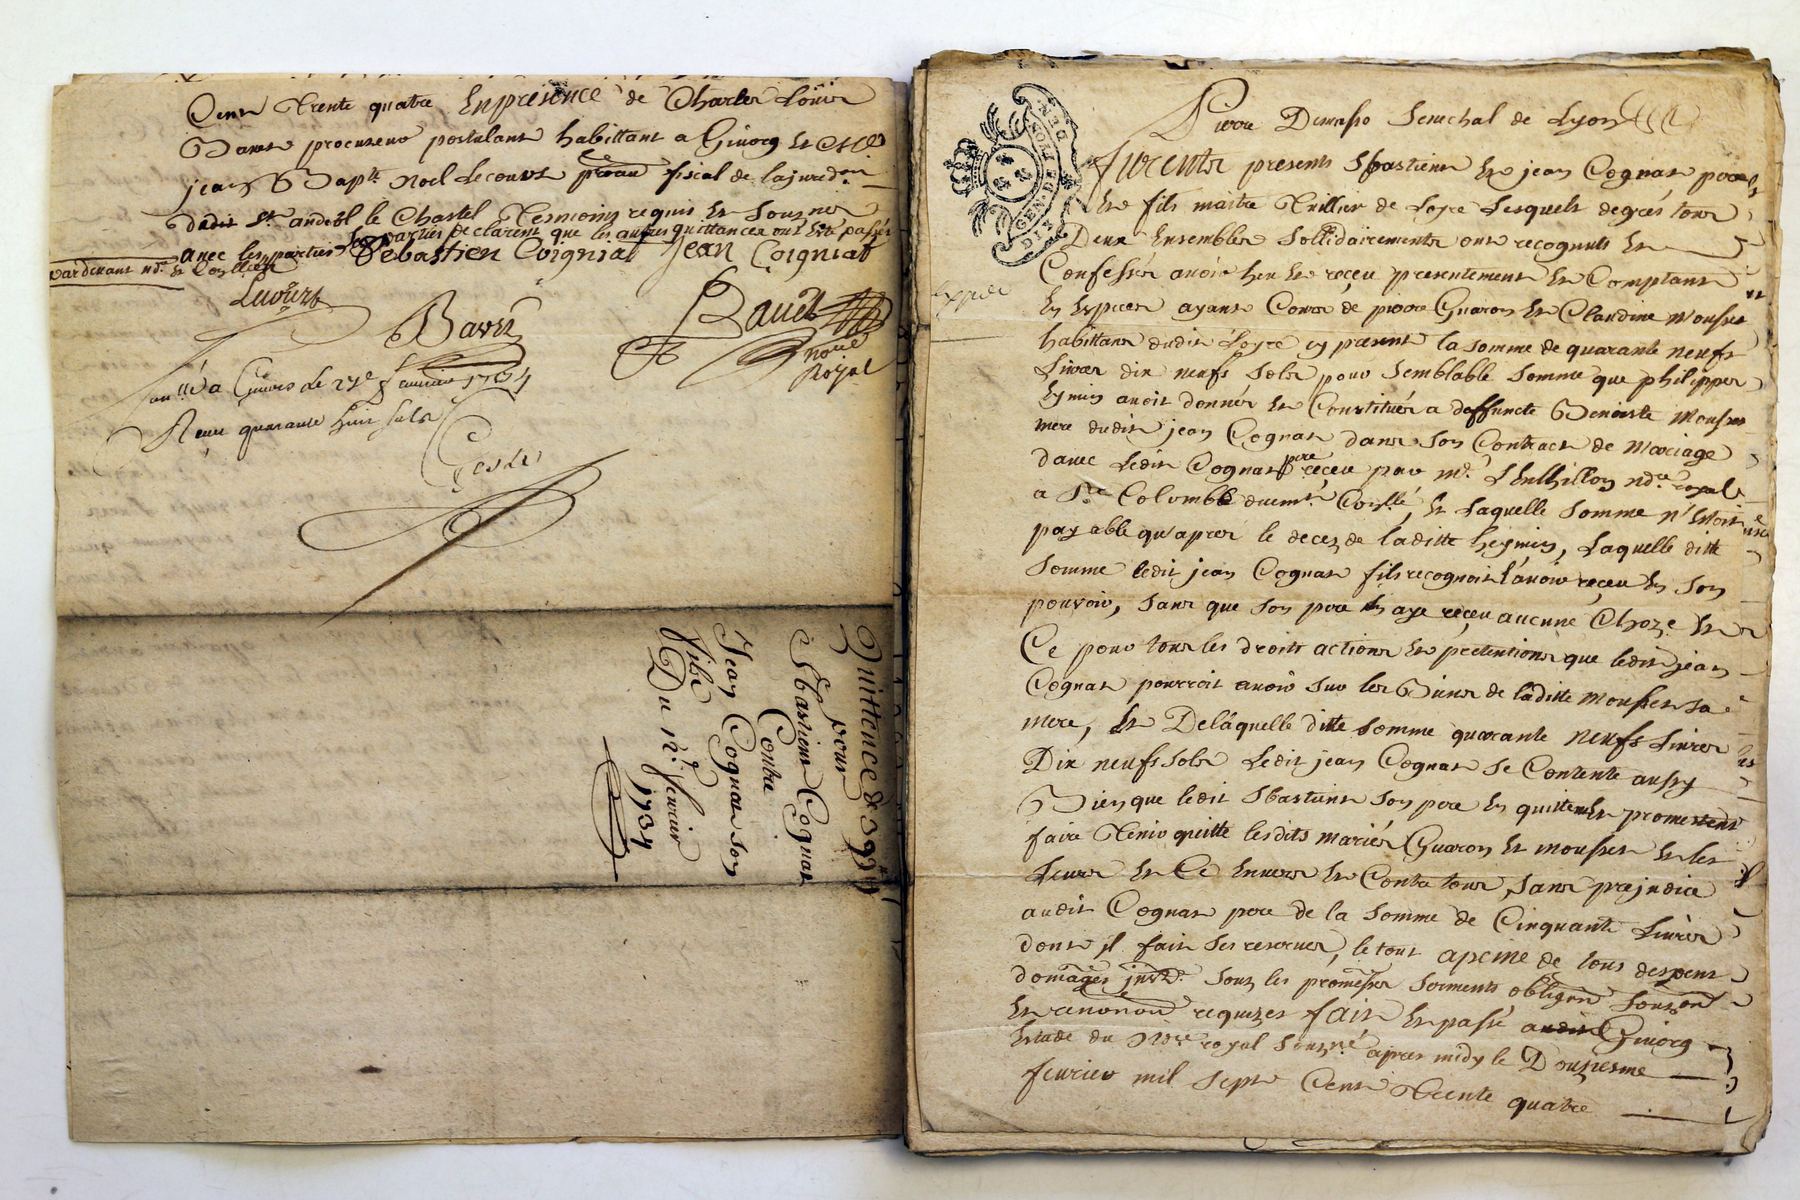 Cent Trente quatre En presence de Charles Loüis
Bavet procureur postulant habittant a Givors et Me
jean Bapte Noel Lecourt procur fiscal de la jurison
dudit St andeol le Chastel Tesmoins requis et sousnes
les parties declarent que les autres quittances ont esté passés
avec les parties Sebastien Coigniat Jean Coigniat
pardevant nd. et
Lecourt
Bavet
noire
Royal
a Givors Le 23e feuvrier 1734
Receu quarante huit sols
Quittance de 39
pour
Sbastien Cognat
Contre
Jean Cognat son
filse
Du 12e feuvrier
1734
Pierre Demasso Senechal de Lyon
furents presents Sbastient et jean Cognat pere
et fils maitre Trillier de Loyre Lesquels de grés tous
Deux Ensembles Sollidairements ont recognuts et
Confessés avoir heu et reçeu presentement et Comptant
En Especes ayant Cours de pierre Guaron et Claudine Mousset
habittans dudit Loyre cy present la somme de quarante neufs
Livres dix neufs Sols pour Semblable Somme que philippes
Eymin avoit donnés et Constitués a deffuncte Benoiste Mousset
mere dudit jean Cognat dans son Contract de Mariage
davec Ledit Cognat pere reçeu par me. Lenthillon ndre royal
a Ste Colombe duemt Conllé, et Laquelle Somme n'Estoit
payable qu'apres le deces de laditte heymin, Laquelle ditte
Somme ledit jean Cognat fils recognoit l'avoir reçeu En son
pouvoir, sans que son pere En aye reçeu aucune Choze Et
Ce pour tous les droits actions et prétentions que ledit jean
Cognat pourroit avoir sur les Biens de laditte Mousset sa
mere, Et De laquelle ditte Somme quarante neufs Livres
Dix neufs sols Ledit jean Cognat se Contente aussy
Bien que ledit Sbastient son pere En quittent et promettent
faire Tenir quitte lesdits mariés Guaron et mousset et les
Leurs et Ce Envers et Contre tous, Sans prejudice
audit Cognat pere de la Somme de Cinquante Livres
dont il fait ses reserves, le tout a peine de tous despens
domages jnts. Sous les promesses serments obligons sousons
et renonons requizes fait Et passé audit Givors
Estude du Nore royal sousné apres midy le Douziesme
feuvrier mil Sept Cent Trente quatre